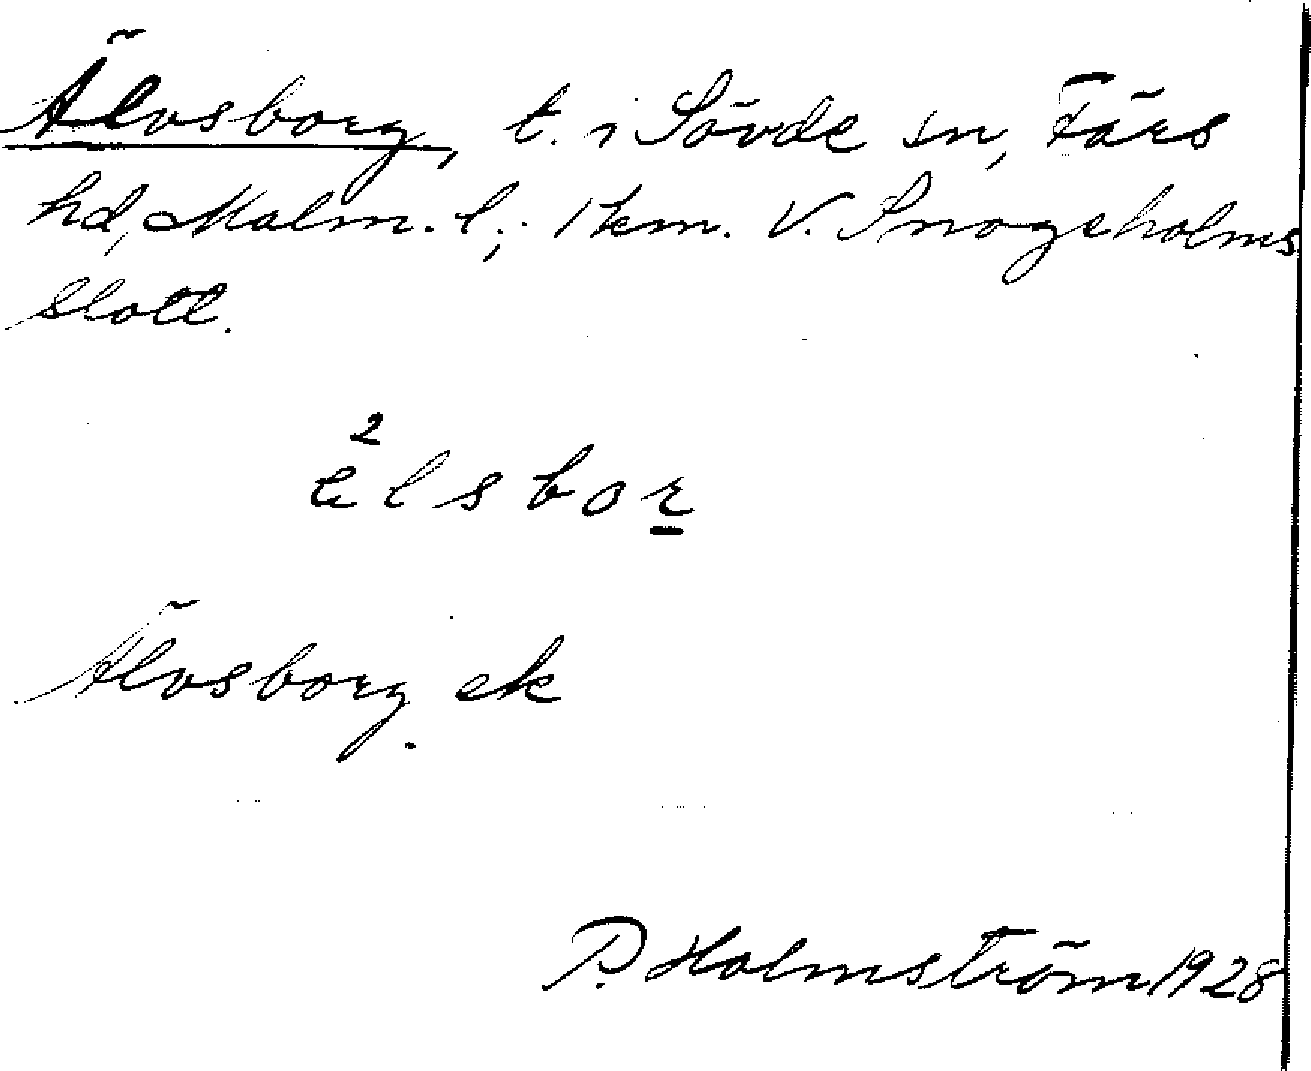 Älvsborg, t. i Sövde sn, Färs
hd, Malm. l.; 1 km. V. Snogeholms
slott.
2
elsbor
Älvsborg ek
P. Holmström 1928